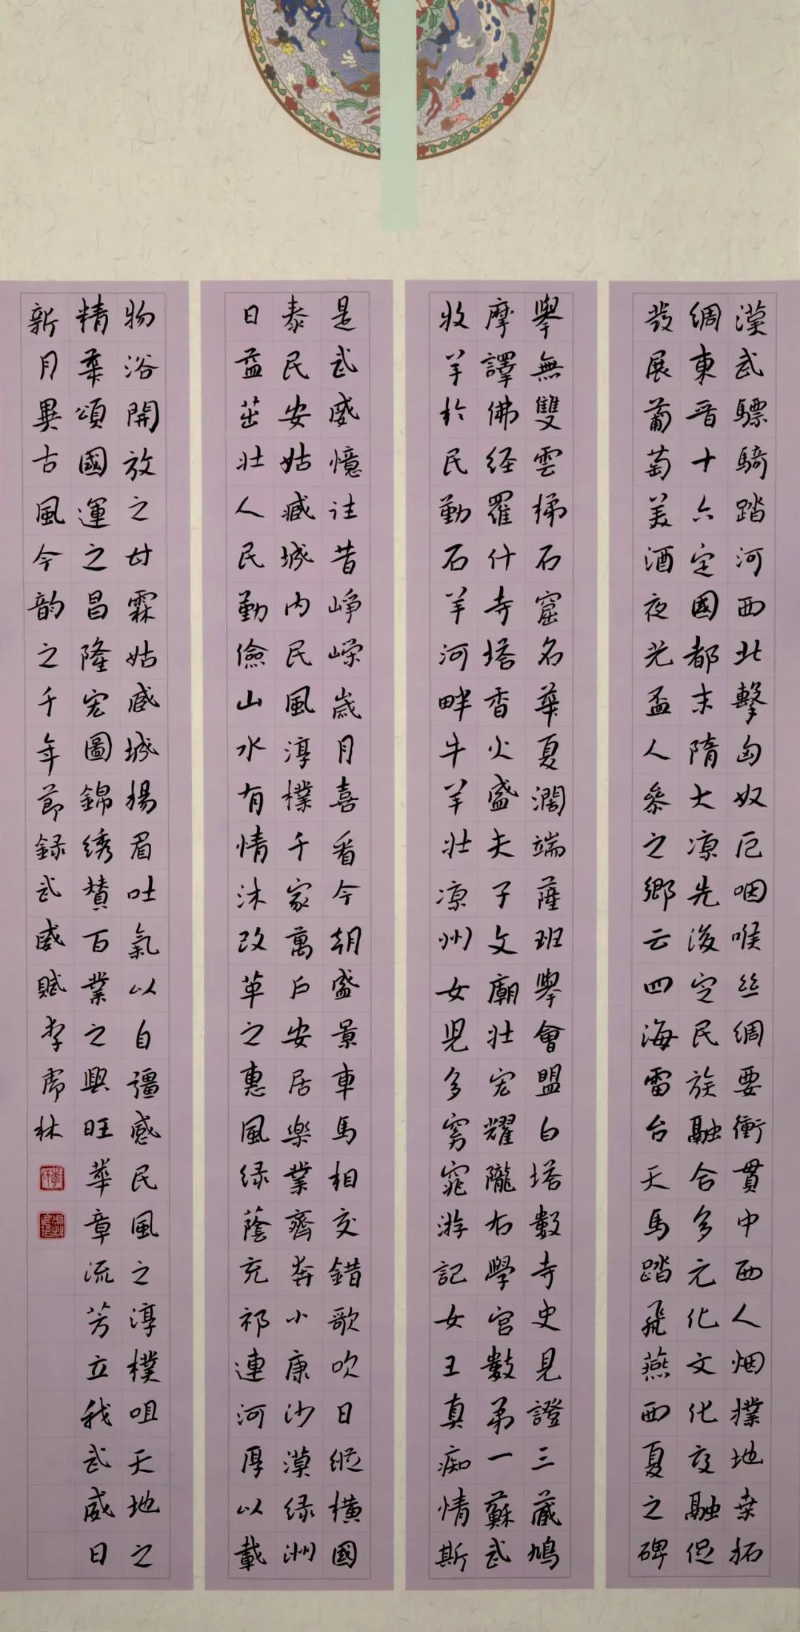 漢武驃騎踏河西北擊匈奴厄咽喉丝绸要衝貫中西人烟撲地桒拓
绸東晋十六定國都末隋大凉先後定民族融合多元化文化交融促
發展葡萄美酒夜光盃人叅之鄉云四海雷台天馬踏飛燕西夏之碑
舉無雙雲梯石窟名華夏濶端薩班舉會盟白塔數寺史見證三藏鳩
摩譯佛经羅什寺塔香火盛夫子文廟壮宏耀隴右學宫數弟一蘇武
牧羊於民勤石羊河畔牛羊壮凉州女児多窈窕游記女王真痴情斯
是武威憶往昔峥嵘歲月喜看今朝盛景車馬相交錯歌吹日縱橫國
泰民安姑臧城内民風淳樸千家萬户安居樂業齊奔小康沙漠绿洲
日益茁壮人民勤儉山水有情沐改革之惠風绿蔭充祁連河厚以載
物浴開放之甘霖姑臧城揚眉吐氣以自彊感民風之淳樸咀天地之
精華頌國運之昌隆宏圖錦绣贊百業之興旺華章流芳立我武威日
新月異古風今韵之千年節録武威賦李虎林